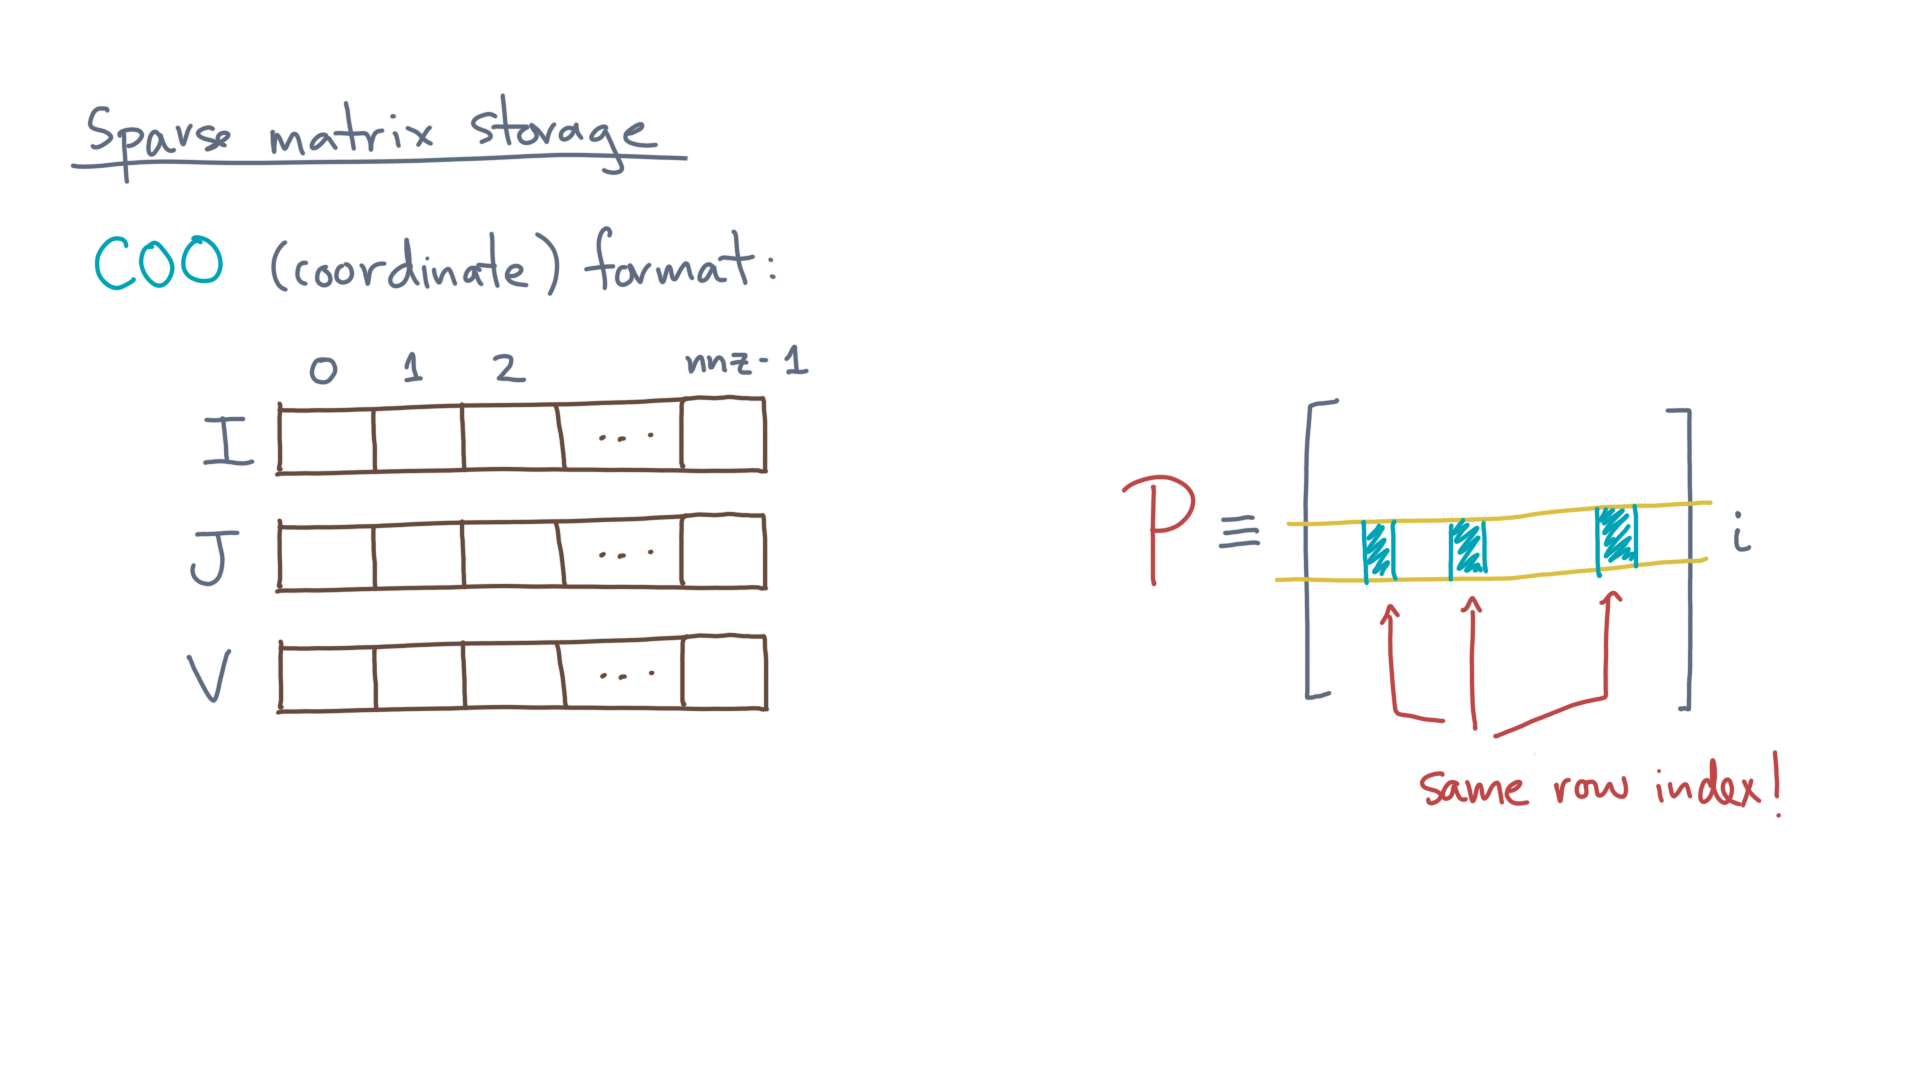 Sparse matrix storage
COO (coordinate) format:
0 1 2 nnz-1
I ...
J ...
V ...
P ≡ i
same row index!